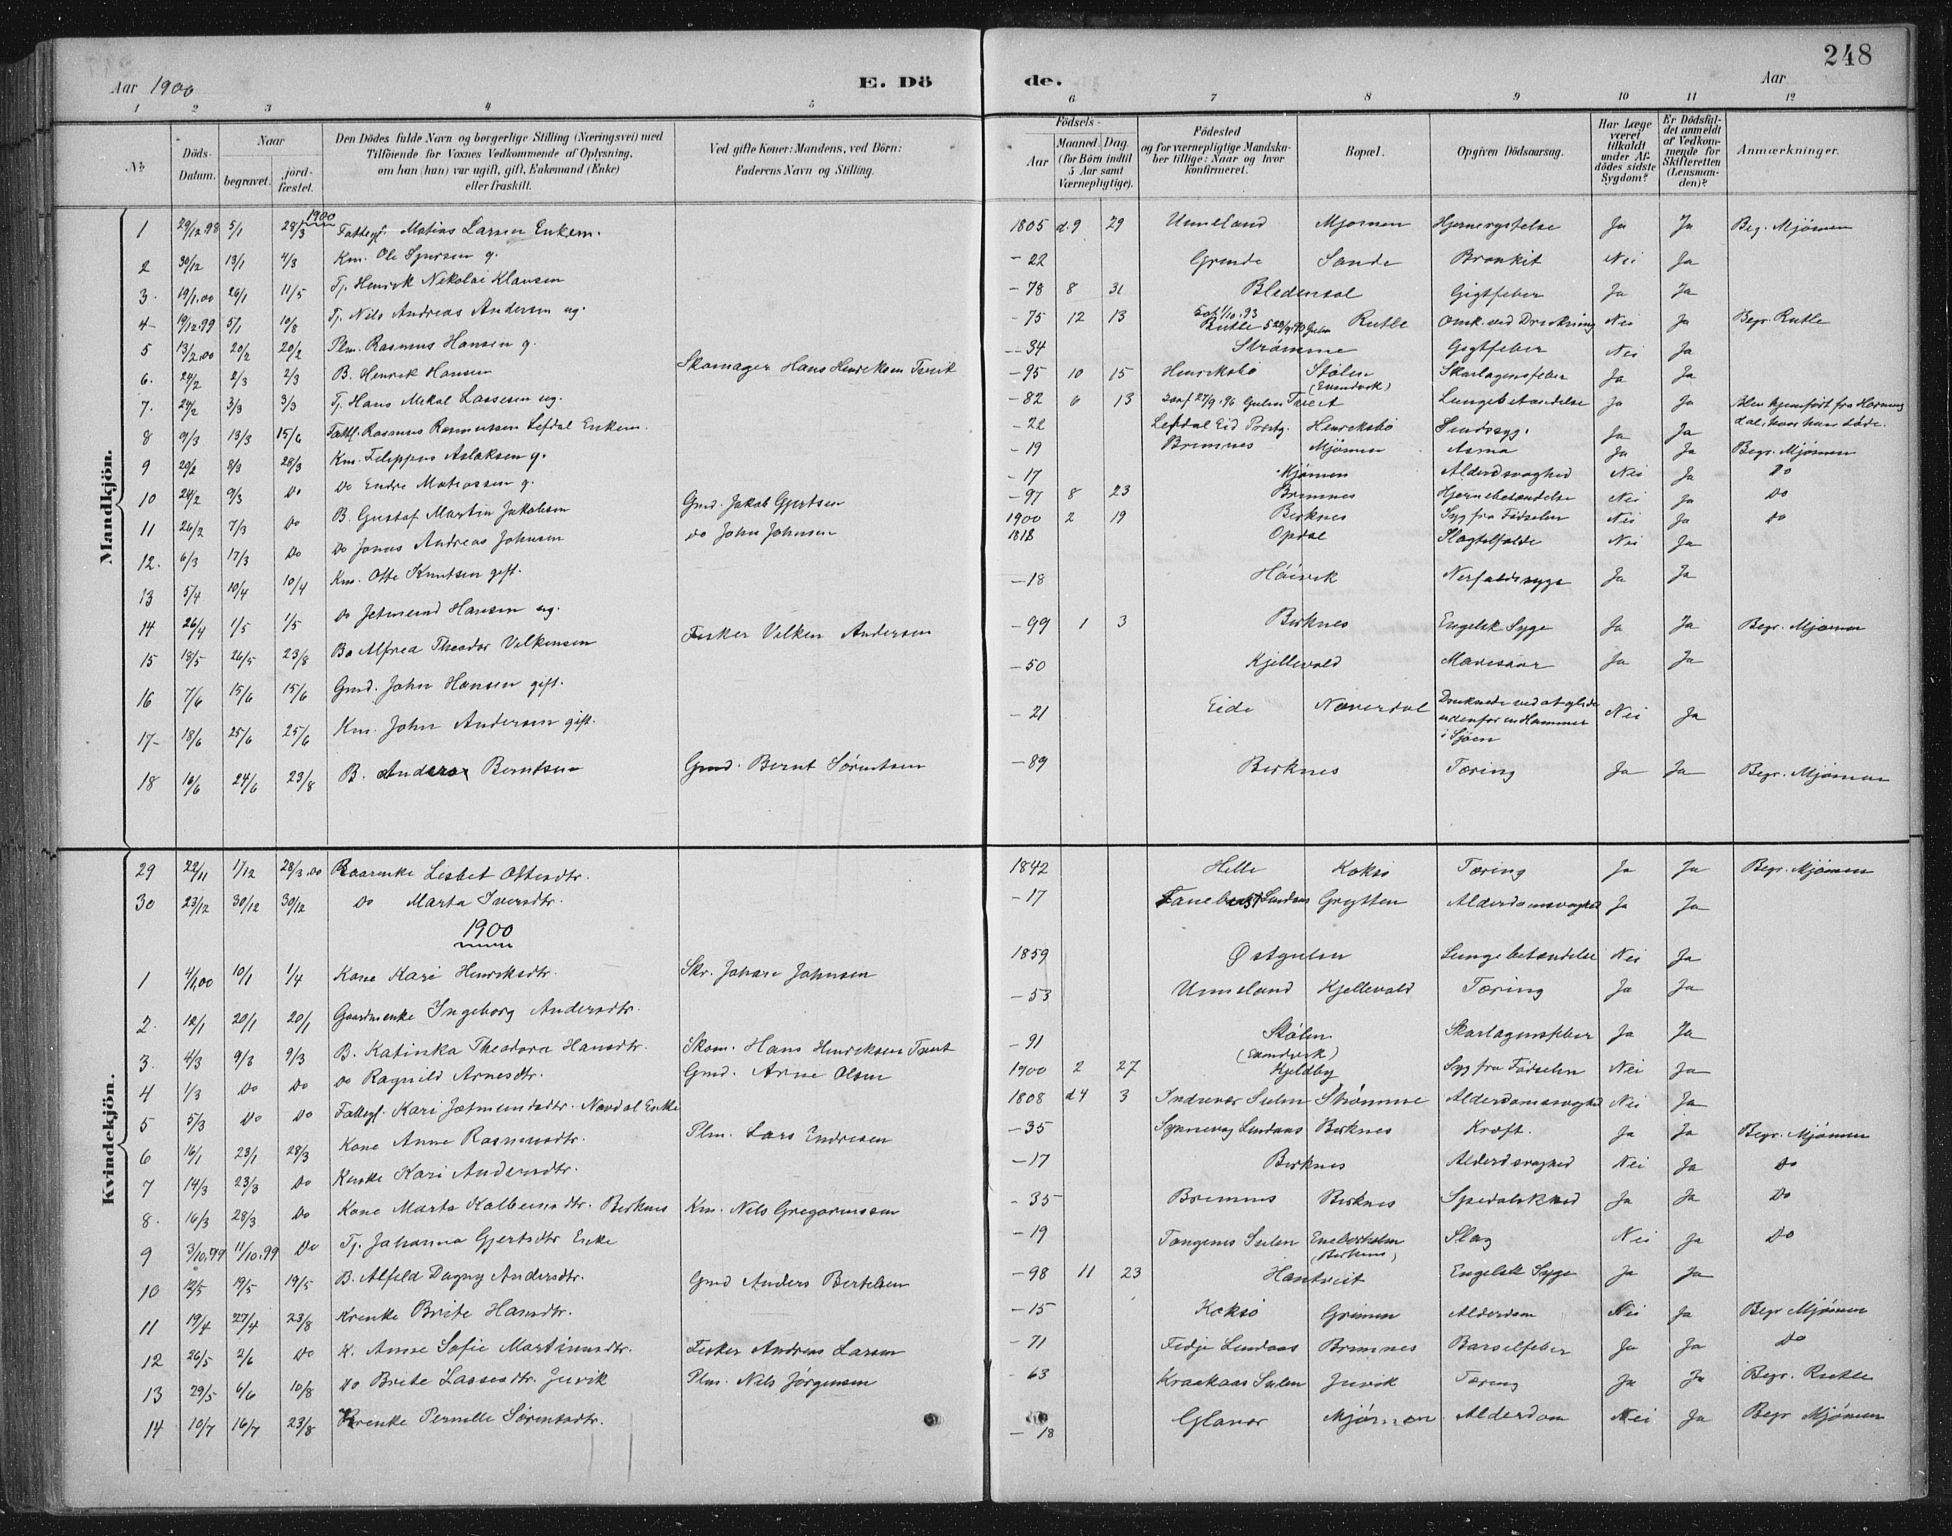 248
Aar 1900 E. Dö de. Aar
1 2 3 4 5 6 7 8 9 10 11 12
No.
Döds-Datum.
Naar
begravet.
jord-fæstet.
Den Dödes fulde Navn og borgerlige Stilling (Næringsvei) med
Tilföiende for Voxnes Vedkommende af Oplysning,
om han (hun) var ugift, gift, Enkemand (Enke)
eller fraskilt.
Ved gifte Koner: Mandens, ved Börn:
Faderens Navn og Stilling.
Födsels-
Aar
Maaned. Dag.
(for Börn indtil
5 Aar samt
Værnepligtige).
Födested
og for værnepligtige Mandska-
ber tillige: Naar og hvor
konfirmeret.
Bopæl.
Opgiven Dödsaarsag.
Har Læge
været
tilkaldt
under Af-
dödes sidste
Sygdom?
Er Dödsfal-
det anmeldt
af Vedkom-
mende for
Skifteretten
(Lensman-
den)?
Anmærkninger.
Mandkjön.
1900
1 29/12.98 5/1 28/3 Fattigl. Matias Larsen Enkem. 1805 d.9 29 Unneland Mjømen Hjernerystelse Ja Ja Beg. Mjömen
2 30/12 13/1 4/3 Km. Ole Sjursen g. -22 Grinde Sande Bronkit Nei Ja
3. 19/1.00 26/1 11/5 Tj. Henrik Nikolai Klausen -78 8 31 Bledensol Gigtfeber Ja Ja
4 19/12.99 5/1 10/8 Tj. Nils Andreas Andersen ug. -75 12 13 Rutle Rutle Omk. ved Drukning Nei Ja Begr. Rutle
5 13/2.00 20/2 20/2 Plm. Rasmus Hansen g. -34 Strømme Gigtfeber Nei Ja
6. 24/2 2/3 2/3 B. Henrik Hansen Skomager Hans Henriksen Tveit -95 10 15 Henriksbö Stölen (Eivindvik) Skarlagensfeber Ja Ja
7. 24/2 3/3 3/3 Tj. Hans Mikal Lassesen ug. -82 6 13 27/9.96 Gulen Tveit Lungebetændelse Ja Ja Blev hjemført fra Hornin
8 9/3 13/3 15/6 Fattl. Rasmus Rasmussen Lefdal Enkem. -22 Lefdal Eid Henriksbö Sindssyg. Ja Ja dal, hvor han døde.
9 20/2 8/3 28/3 Km. Filippus Aslaksen g. -19 Bremnes Mjømen Asma Ja Ja Begr. Mjömen
10 24/2 9/3 Do Do Endre Matiassen g. -17 Mjömen Alderdsvaghed Nei Ja Do
11 26/2 7/3 Do B. Gustaf Martin Jakobsen Gmd. Jakob Gjertsen -97 8 23 Brimnes Hjernebetændelse Nei Ja Do
12. 6/3 17/3 Do Do Jonas Andreas Johnsen Do John Johnsen 1900 2 19 Birknes Syg fra Födselen Nei Ja Do
13 5/4 10/4 10/4 Km. Otte Knutsen gift. 1818 Opdal Slagtilfælde Nei Ja
14 26/4 1/5 1/5 Do Jetmund Hansen ug. -18 Höivik Nerfaldssyge Ja Ja
15 18/5 26/5 23/8 B. Alfred Theodor Vilkensen Fisker Vilken Andersen -99 1 3 Birknes Engelsk Syge Ja Ja Begr. Mjømen
16 7/6 15/6 15/6 Gmd. John Hansen gift. -50 Kjellevold Mavesaar Ja Ja
17- 18/6 25/6 25/6 Km. John Andersen gift. -21 Eide Næverdal Druknede ved at glide
udenfor en Hammer
i Sjöen Nei Ja
18 16/6 24/6 23/8 B. Anders Berntsen Gmd. Bernt Sørentsen -89 Birknes Tæring Ja Ja Begr. Mjømen
Kvindekjön.
29 22/11 1/12 28/3.00 Lisbet Ottesdtr. 1842 Helle Koksö Tæring Ja Ja Begr. Mjömen
30 23/12 30/12 30/12 Do Marta Iversdtr. -17 Lindaas Grytten Alderdomsvaghed Ja Ja
1900
1 4/1.00 10/1 1/4 Kone Kari Henriksdtr. Skr. Johan Johnsen 1859 Østgulen Lungebetændelse Nei Ja
2. 12/1 20/1 20/1 Gaardmenke Ingeborg Andersdtr. -53 Unneland Kjellevold Tæring Ja Ja
3. 4/3 9/3 9/3 B. Katinka Theodora Hansdtr. Skom. Hans Henriksen Tveit -91 Stølen (Eivindvik) Skarlagensfeber Ja Ja
4 1/3 Do Do Do Ragnild Arnesdtr. Gmd. Arne Olsen 1900 2 27 Kjeldby Syg fra Födselen Nei Ja
5 5/3 Do Do Fattigl. Kari Jetmundsdtr. Nordal Enke 1808 d4 3 Indrevær Sulen Strømme Alderdomsvaghed Nei Ja
6 16/1 23/1 28/3 Kone Anne Rasmusdtr. Plm. Lars Endresen -35 Lindaas Birknes Kræft. Ja Ja Begr. Mjömen
7 14/3 23/3 Do Enke Kari Andersdtr. -17 Birknes Alderdsvaghed Nei Ja Do
8. 16/3 28/3 Do Kone Marta Kolbeinsdtr. Birknes Km. Nils Gregoriussen -35 Bremnes Birknes Spedalskhed Ja Ja Do
9 3/10.99 11/10.99 Do Tj. Johanna Gjertsdtr Enke -19 Tangenes Sulen Eneberholm (Birknes) Slag Nei Ja Do
10 12/5 19/5 19/5 B. Alfild Dagny Andersdtr. Gmd Anders Bertelsen -98 11 23 Hantveit Engelsk Syge Ja Ja
11 19/4 27/4 23/8 Krenke Brite Hansdtr. -15 Koksö Grimen Alderdom Nei Ja Begr Mjömen
12 26/5 2/6 Do K. Anne Sofie Martinusdtr. Fisker Andreas Larsen -71 Fedje Lindaas Brimnes Barselfeber Ja Ja Do
13 29/5 6/6 10/8 Do Brite Lassesdtr. Juvik Plm. Nils Jørgensen -63 Kraakaas Sulen Juvik Tæring Ja Ja Begr. Rutle
14 10/7 16/7 23/8 Krenke Pernille Sørentsdtr. -18 Glavær Mjømen Alderdom Nei Ja Begr Mjömen